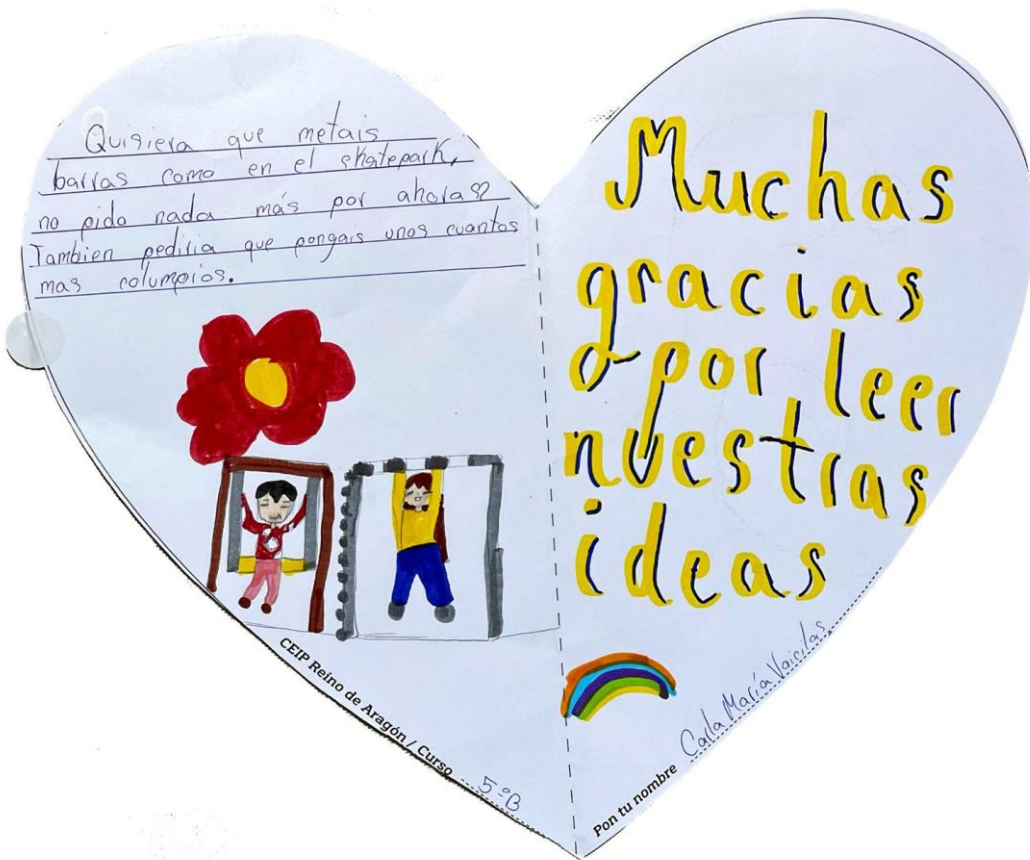 Quisiera que metais
barras como en el skatepark,
no pido nada más por ahora♡
Tambien pediria que pongais unos cuantos
mas columpios.
CEIP Reino de Aragón / Curso 5ºB
Muchas
gracias
por leer
nuestras
ideas
Pon tu nombre Carla María